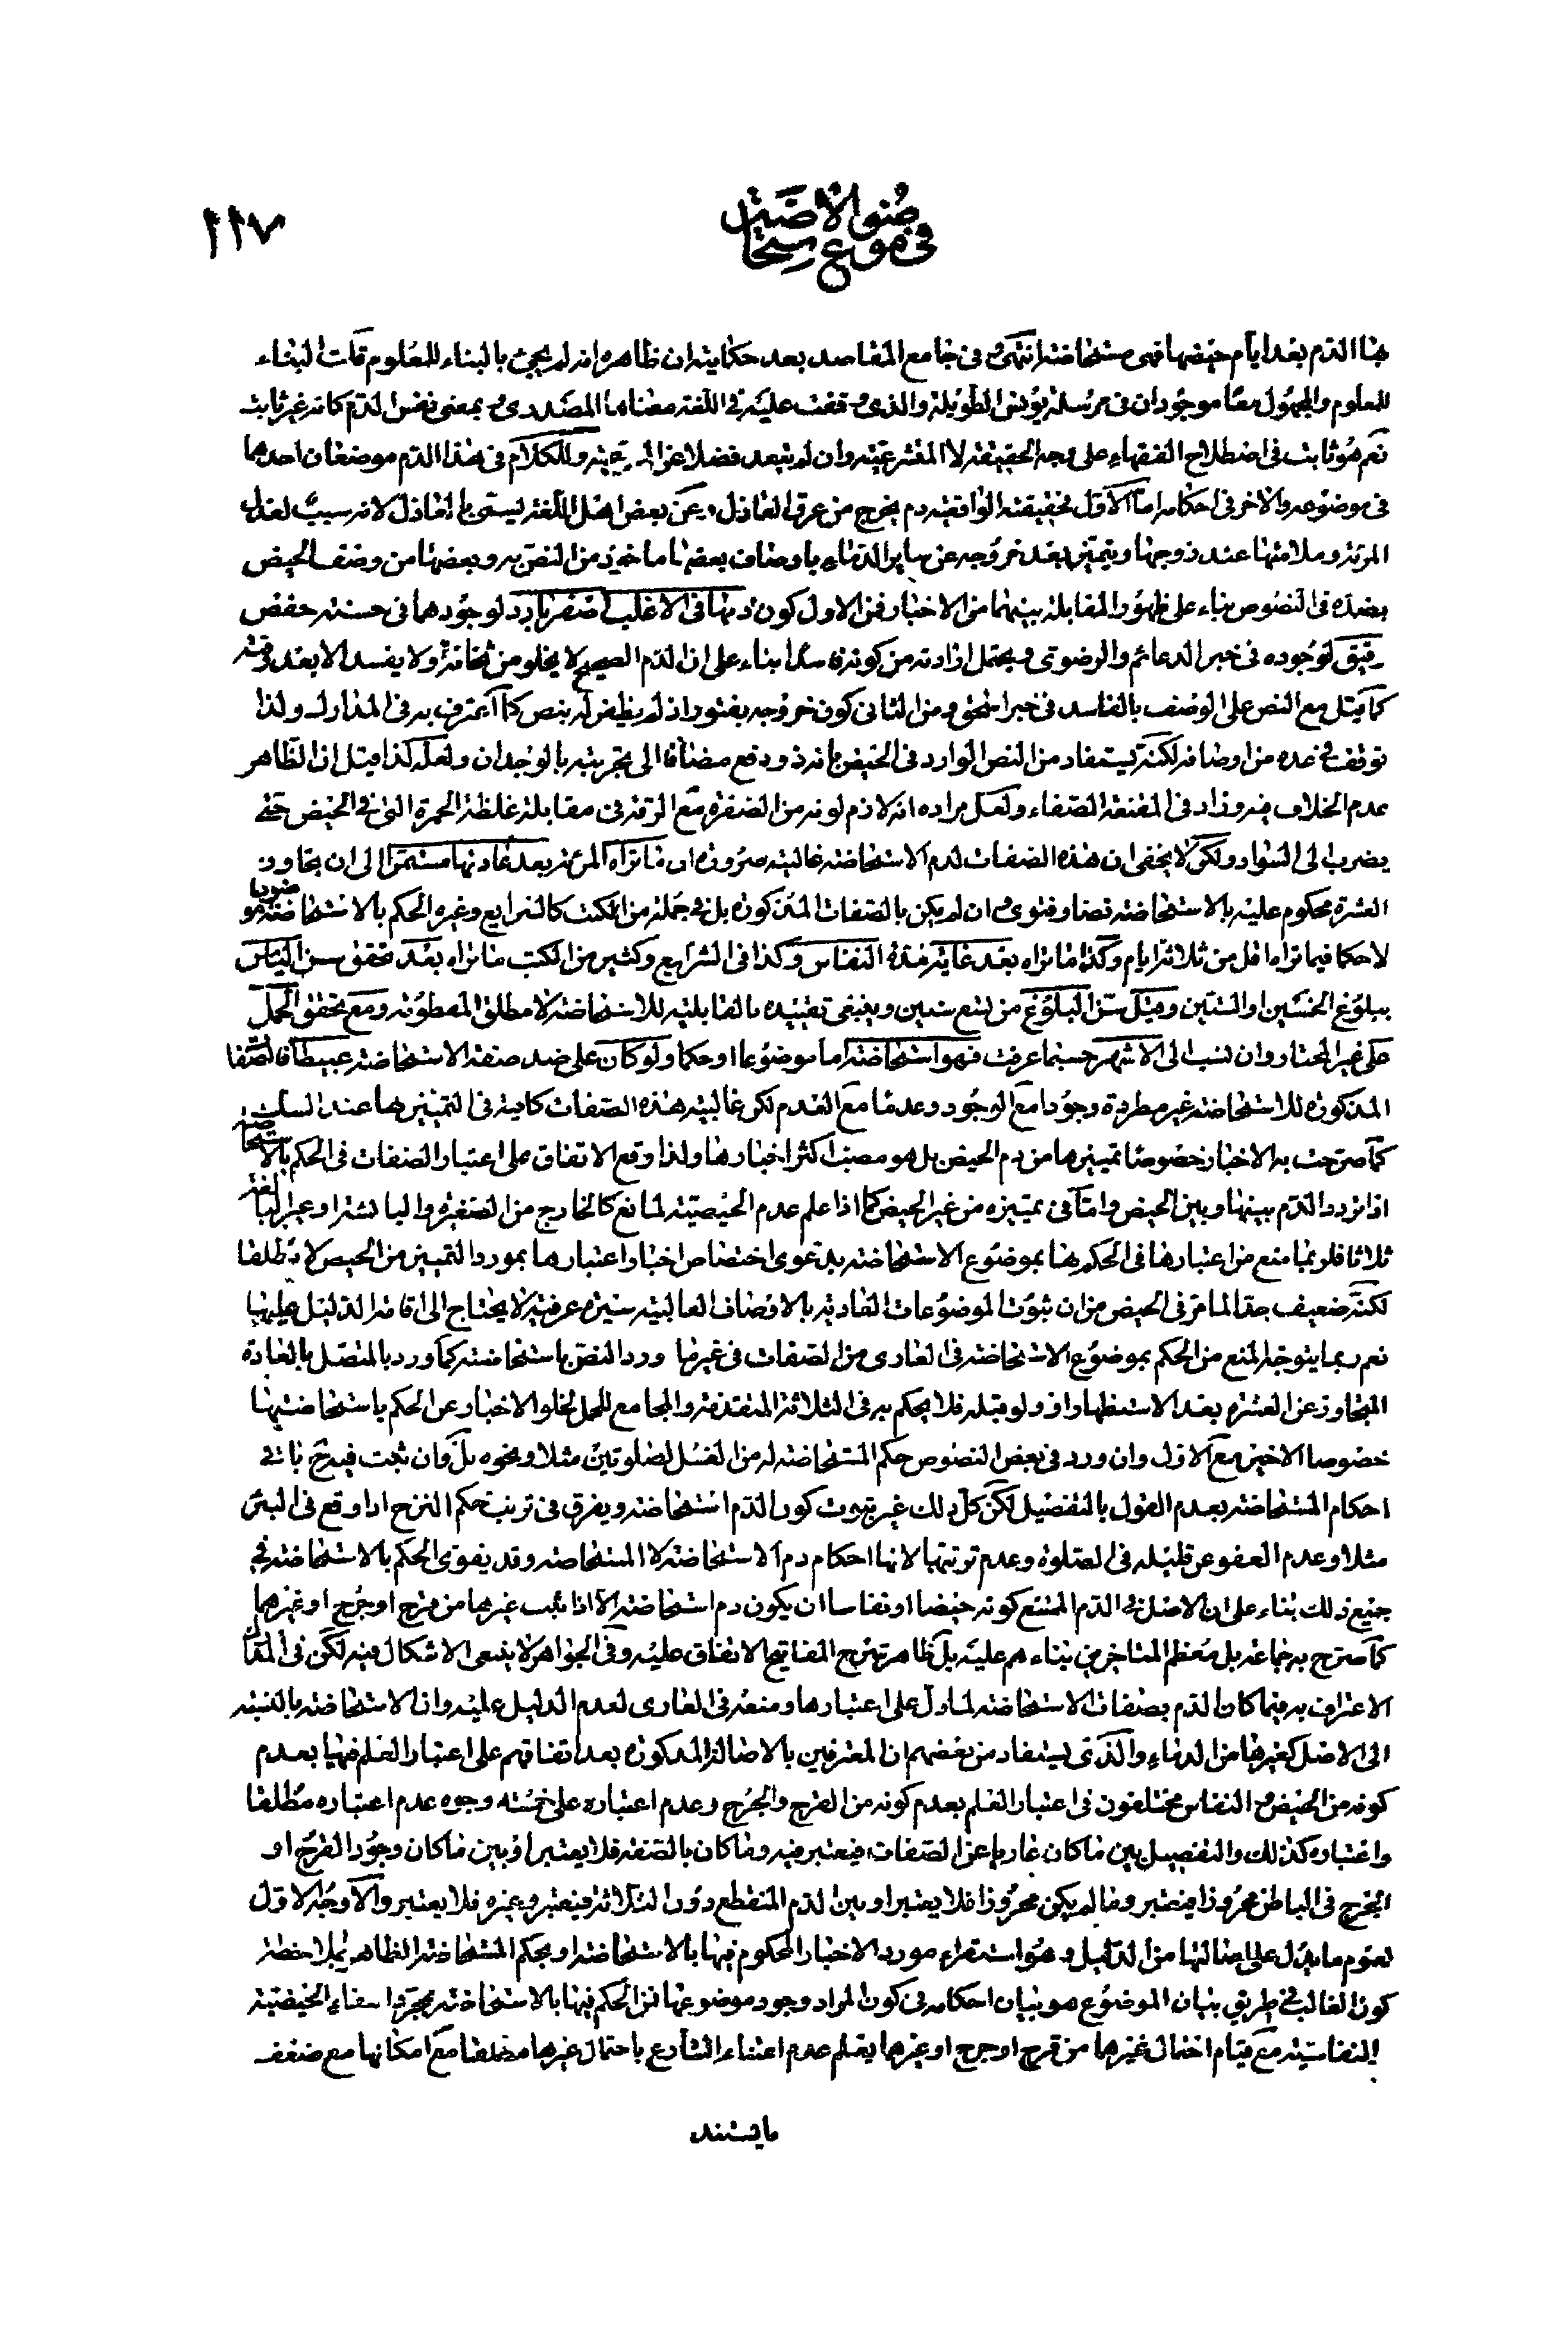 في موضوع الاستحاضة
١١٧
بها الدم بعد ايام حيضها فهى مستحاضة انتهى وفى جامع المقاصد بعد حكايته ان ظاهره انه لم يجئ بالبناء للمعلوم قلت البناء
للمعلوم والمجهول معا موجودان فى مرسلة يونس الطويلة والذى وقفت عليه فى اللغة معناها المصدرى وبمعنى نفس الدم كانه غير ثابت
نعم هو ثابت فى اصطلاح الفقهاء على وجه الحقيقة لا المتشرعية وان لم يبعد فضلا عن وللكلام فى هذا الدم موضعان احدهما
فى موضوعه والاخر فى احكامه اما الاول فحقيقته الواقعية دم يخرج من عرق العاذل وعن بعض اهل اللغة يستحق العاذل لانه سبب لعذل
المرئة وملامتها عند زوجها ويتميز بعد خروجه عن ساير الدماء باوصاف بعضها ماخوذ من النص به وبعضها من وصف الحيض
بضده فى النصوص بناء على ظهور المقابلة بينهما من الاخبار فمن الاول كون دمها فى الاغلب اصفر بارد لوجودهما فى حسنة حفص
رقيق لوجوده فى خبر الدعائم والرضوى ويحتمل ارادته من كونه فاسدا بناء على ان الدم الصحيح لا يخلو من ثخانة ولا يفسد الا بعد رقته
كما قيل مع النص على الوصف بالفاسد فى خبر اسحق ومن الثانى كون خروجه بفتور اذ لم يظفر له بنص كما اعترف به فى المدارك ولذا
توقف فى عده من اوصافه لكنه يستفاد من النص الوارد فى الحيض بانه ذو دفع مضافا الى تجربته بالوجدان ولعله لذا قيل ان الظاهر
عدم الخلاف فيه وزاد فى المقنعة الصفاء ولعل مراده انه لازم لونه من الصفرة مع الرقة فى مقابلة غلظة الحمرة التى فى الحيض حتى
يضرب الى السواد ولكن لا يخفى ان هذه الصفات لدم الاستحاضة غالبية ضرورة ان ما تراه المرئة بعد عادتها مستمرا الى ان يتجاوز
العشرة محكوم عليه بالاستحاضة نصا وفتوى وان لم يكن بالصفات المذكورة بل فى جملة من الكتب كالشرايع وغيره الحكم بالاستحاضة موضوعا
لا حكما فيما تراه اقل من ثلاثة ايام وكذا ما تراه بعد غاية مدة النفاس وكذا فى الشرايع وكثير من الكتب ما تراه بعد تحقق سن الياس
ببلوغ الخمسين او الستين وقبل سن البلوغ من تسع سنين وينبغى تقييده بالقابلية للاستحاضة لا مطلق المقطوعة ومع تحقق الحمل
على غير المختار وان نسب الى الاشهر حسبما عرفت فهو استحاضة اما موضوعا او حكما ولو كان على ضد صفة الاستحاضة عبيطا فالصفات
المذكورة للاستحاضة غير مطردة وجودا مع الوجود وعدما مع العدم لكن غالبية هذه الصفات كافية فى التمييز بها عند الشك
كما صرحت به الاخبار خصوصا تمييزها من دم الحيض بل هو مصب اكثر اخبارها ولذا وقع الاتفاق على اعتبار الصفات فى الحكم بالاستحاضة
اذا تردد الدم بينها وبين الحيض واما فى تمييزه من غير الحيض كما اذا علم عدم الحيضية لمانع كالخارج من الصغيرة واليائسة او غير البالغ
ثلاثا فلربما منع من اعتبارها فى الحكم بها بموضوع الاستحاضة بدعوى اختصاص اخبار اعتبارها بمورد التمييز من الحيض لا مطلقا
لكنه ضعيف جدا لما مر فى الحيض من ان ثبوت الموضوعات العادية بالاوصاف الغالبية سيرة عرفية لا يحتاج الى اقامة الدليل عليها
نعم ربما يتوجه المنع من الحكم بموضوع الاستحاضة فى العارى من الصفات فى غير ما ورد النص باستحاضته كما ورد بالمتصل بالعادة
المتجاوز عن العشرة بعد الاستظهار او ولو قبله فلا يحكم به فى الثلاثة المتقدمة والمجامع للحمل لخلو الاخبار عن الحكم باستحاضتها
خصوصا الاخير مع الاول وان ورد فى بعض النصوص حكم المستحاضة له من الغسل لصلوتين مثلا ونحوه بل وان ثبت فيه باقى
احكام المستحاضة بعدم القول بالتفصيل لكن كل ذلك غير ثبوت كون الدم استحاضة ويفرق فى ترتيب حكم النزح اذا وقع فى البئر
مثلا وعدم العفو عن قليله فى الصلوة وعدم ترتبها لانها احكام دم الاستحاضة لا المستحاضة وقد يقوى الحكم بالاستحاضة فى
جميع ذلك بناء على ان الاصل فى الدم الممتنع كونه حيضا او نفاسا ان يكون دم استحاضة الا اذا ثبت غيرها من قرح او جرح او غيرهما
كما صرح به جماعة بل معظم المتاخرين بناء هم عليه بل ظاهر شرح المفاتيح الاتفاق عليه وفى الجواهر لا ينبغى الاشكال فيه لكن فى المدارك
الاعتراف به فيما كان الدم بصفات الاستحاضة لما دل على اعتبارها ومنعه فى العارى لعدم الدليل عليه وان الاستحاضة بالنسبة
الى الاصل كغيرها من الدماء والذى يستفاد من بعضهم ان المعترفين بالاصالة المذكورة بعد اتفاقهم على اعتبار العلم فيها بعدم
كونه من الحيض والنفاس مختلفون فى اعتبار العلم بعدم كونه من القرح والجرح وعدم اعتباره على خمسة وجوه عدم اعتباره مطلقا
واعتباره كذلك والتفصيل بين ما كان عاريا عن الصفات فيعتبر فيه وما كان بالصفة فلا يعتبر او بين ما كان وجود القرح او
الجرح فى الباطن محرزا فيعتبر وما لم يكن محرزا فلا يعتبر او بين الدم المنقطع دون الثلاثة فيعتبر وغيره فلا يعتبر والاوجه الاول
لعموم ما يدل على اصالتها من الدليل وهو استقراء مورد الاخبار المحكوم فيها بالاستحاضة او بحكم المستحاضة الظاهر بملاحظة
كون الغالب فى طريق بيان الموضوع هو بيان احكامه فى كون المراد وجود موضوعها فمن الحكم فيها بالاستحاضة بمجرد انتفاء الحيضية
النفاسية مع قيام احتمال غيرهما من قرح او جرح او غيرهما يعلم عدم اعتناء الشارع باحتمال غيرها مطلقا مع امكانها مع ضعف
ما يستند